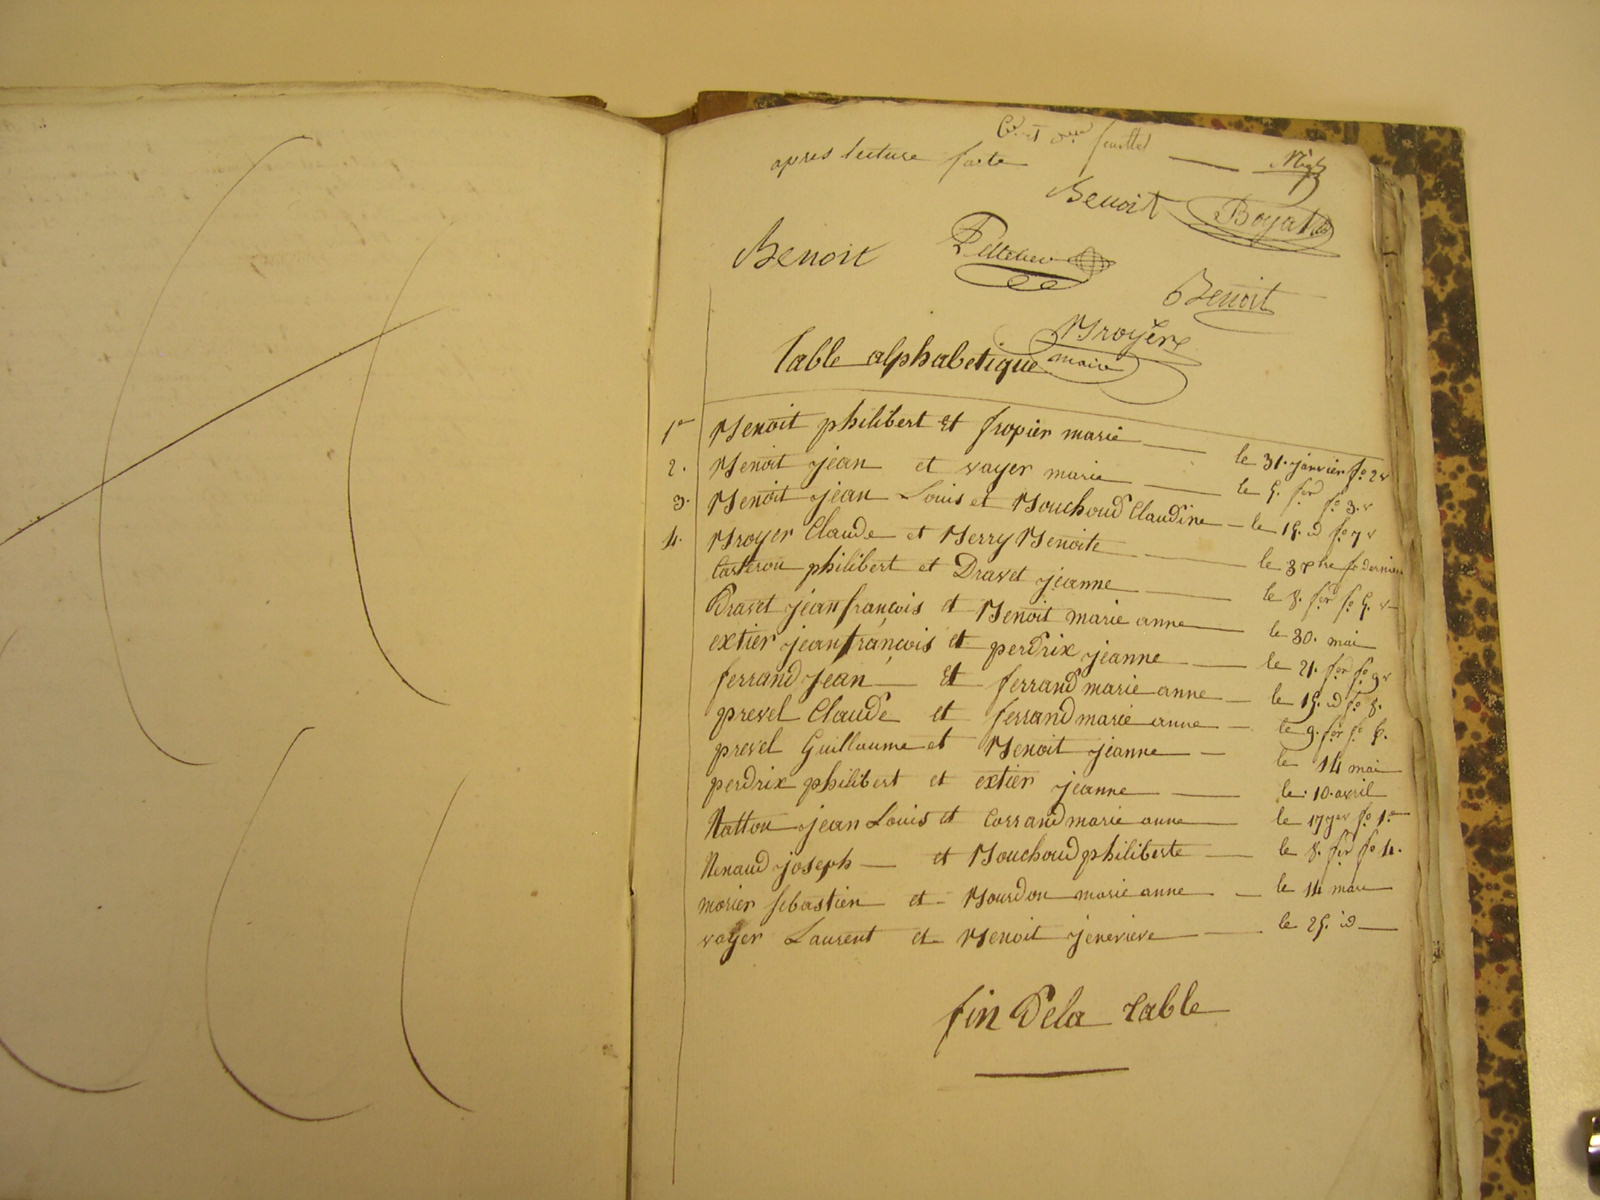 feuillet
apres lecture faite
Benoit Boyat
Benoit Pelletier
Benoit
Broyere
maire
Table alphabetique
1er Benoit philibert et fropier marie le 31. janvier fo. 2 v
2. Benoit jean et vayer marie le 5. fer fo 3. v
3. Benoit jean Louis et Bouchoud Claudine le 15. id fo 7 v
4. Broyer Claude et Berry Benoite le 3 xbre fo dernier
Casteron philibert et Dravet jeanne le 8. fer fo 5. v
Dravet jean françois et Benoit marie anne le 30. mai
extier jean françois et perdrix jeanne le 21. fer fo 9 v
ferrand jean et ferrand marie anne le 15. id fo 8.
prevel Claude et ferrand marie anne le 9. fer fo 6.
prevel Guillaume et Benoit jeanne le 14 mai
perdrix philibert et extier jeanne le 10. avril
Natton jean Louis et Corrand marie anne le 17 fo 1er
Renaud joseph et Bouchoud philiberte le 8. fer fo 4.
morier sebastien et Bourdon marie anne le 14 mars
vayer Laurent et Benoit jenevieve le 25. id
fin de la table